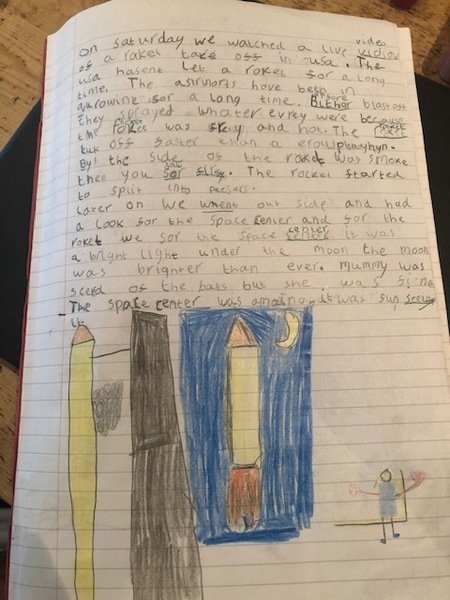 on saturday we watched a live video vidiow
of a roket take off in usa. The
usa hasent let a roket for a long
time. The astrinorts have been in
qarowine for a long time. Bithor before blastoft
They sprayed whater evrey were because
the roket was firey and hot. The
tuk off faster than a erow
By! the side of the roket was smoke
then you sor saw firey. The rocket started
to split into peesers.
Later on we whent out side and had
a look for the space center and for the
roket we sor the space center it was
a bright light under the moon the moon
was brighter than ever. mummy was
scerd of the bats but she was fine
The space center was amazing it was sup